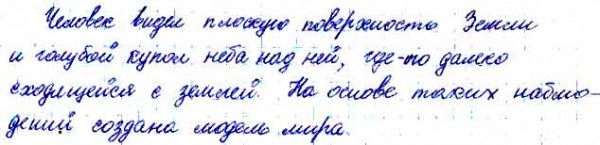 Человек видел плоскую поверхность Земли
и голубой купол неба над ней, где-то далеко
сходящейся с землей. На основе таких наблю-
дений создана модель мира.